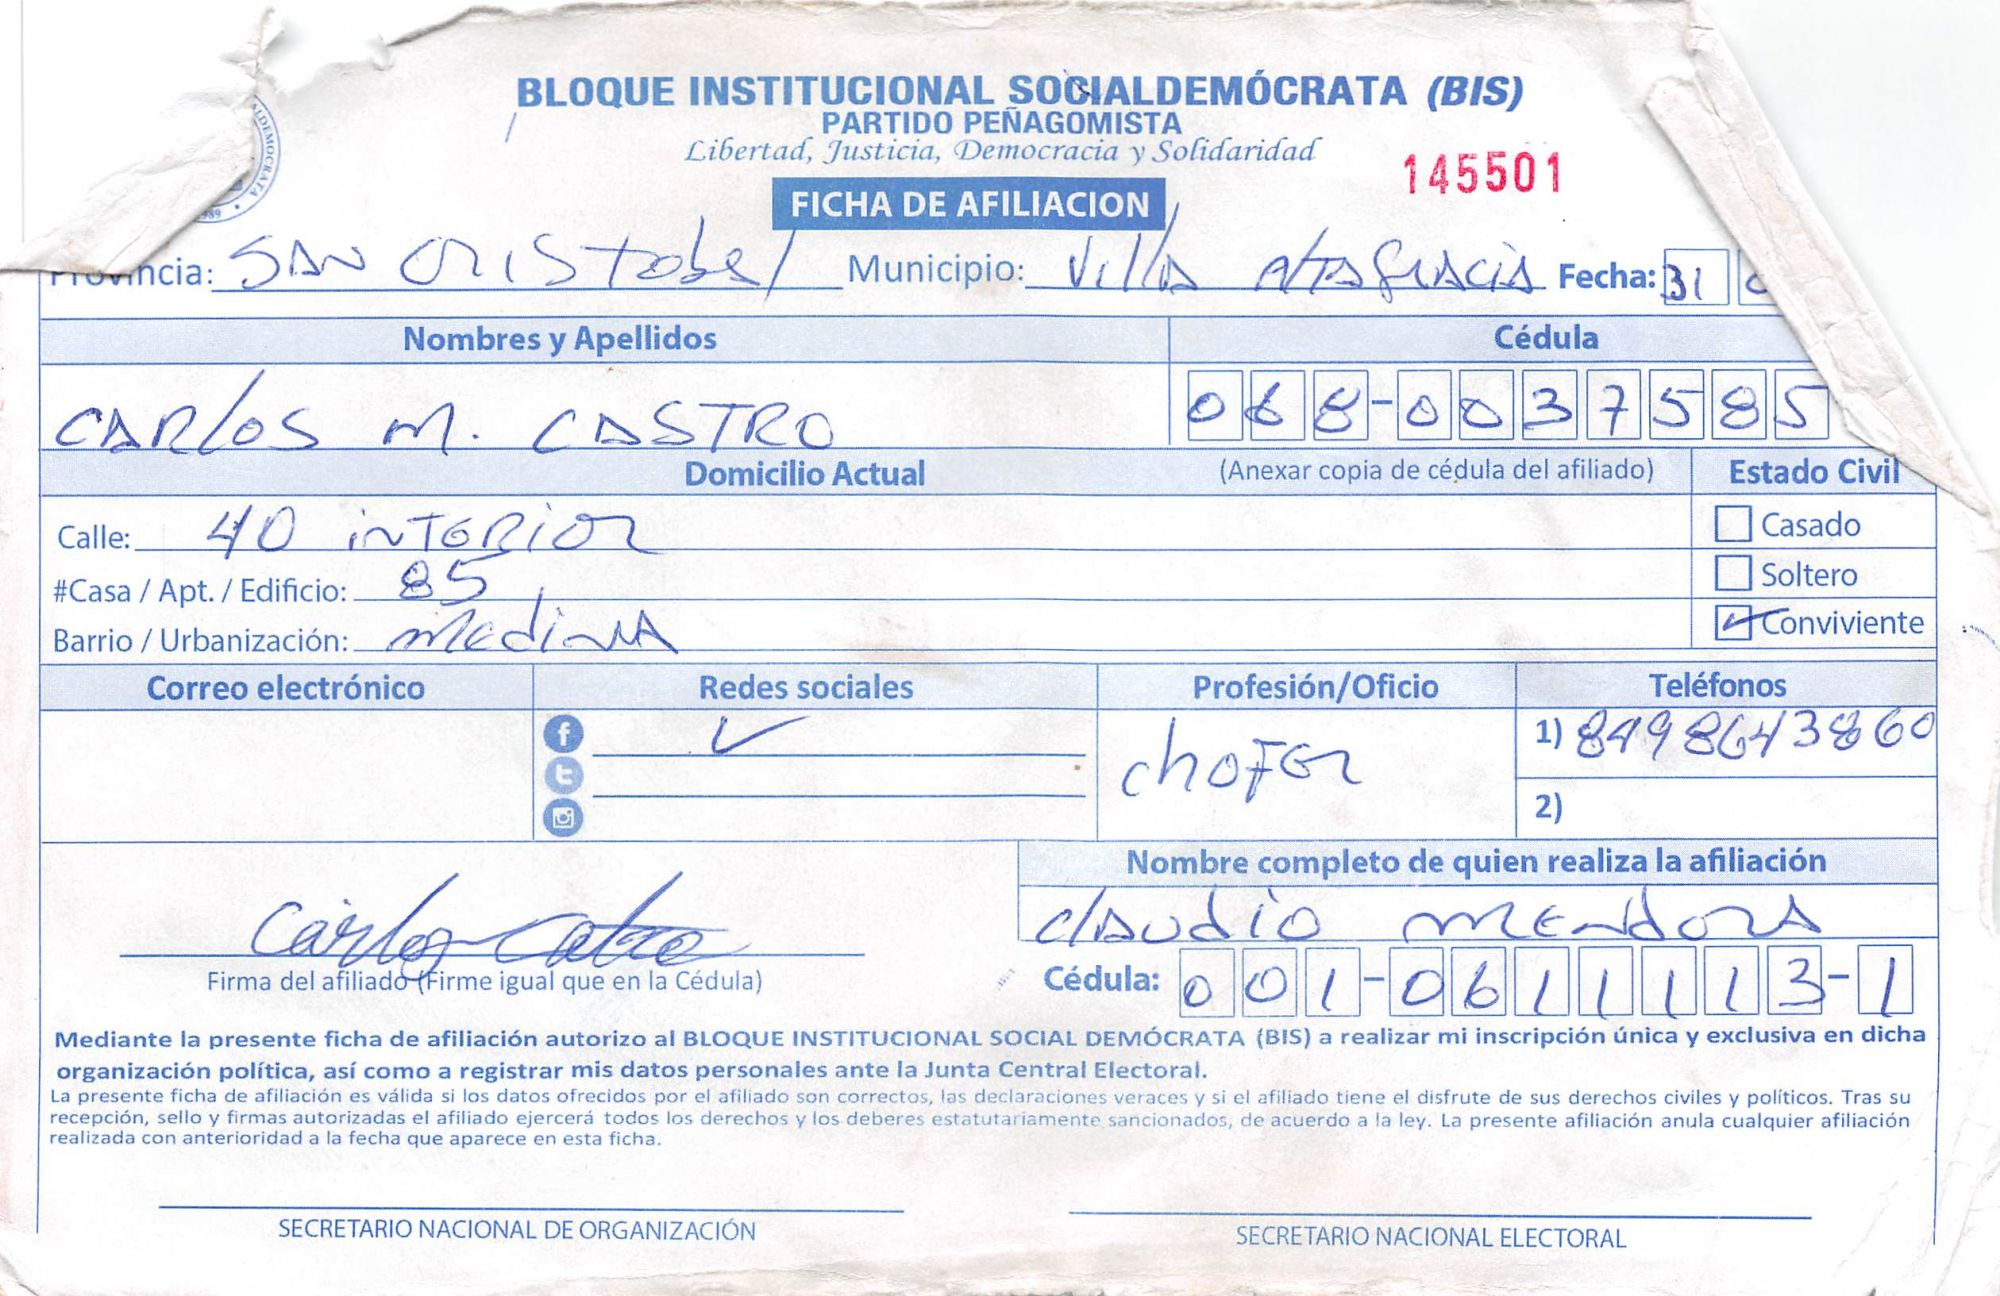 BLOQUE INSTITUCIONAL SOCIALDEMÓCRATA (BIS)
PARTIDO PEÑAGOMISTA
Libertad, Justicia, Democracia y Solidaridad
145501
FICHA DE AFILIACION
Provincia: SAN CRISTobal Municipio: Villa AltAgrAciA Fecha: 31
Nombres y Apellidos Cédula
CARlos M. CASTRO 068-0037585
Domicilio Actual (Anexar copia de cédula del afiliado) Estado Civil
Calle: 40 iNTERiOR Casado
#Casa / Apt. / Edificio: 85 Soltero
Barrio / Urbanización: MediNA Conviviente
Correo electrónico Redes sociales Profesión/Oficio Teléfonos
1) 8498643860
choFER
2)
Nombre completo de quien realiza la afiliación
Carlos Castro clAudio MENdozA
Firma del afiliado (Firme igual que en la Cédula) Cédula: 001-0611113-1
Mediante la presente ficha de afiliación autorizo al BLOQUE INSTITUCIONAL SOCIAL DEMÓCRATA (BIS) a realizar mi inscripción única y exclusiva en dicha
organización política, así como a registrar mis datos personales ante la Junta Central Electoral.
La presente ficha de afiliación es válida si los datos ofrecidos por el afiliado son correctos, las declaraciones veraces y si el afiliado tiene el disfrute de sus derechos civiles y políticos. Tras su
recepción, sello y firmas autorizadas el afiliado ejercerá todos los derechos y los deberes estatutariamente sancionados, de acuerdo a la ley. La presente afiliación anula cualquier afiliación
realizada con anterioridad a la fecha que aparece en esta ficha.
SECRETARIO NACIONAL DE ORGANIZACIÓN SECRETARIO NACIONAL ELECTORAL